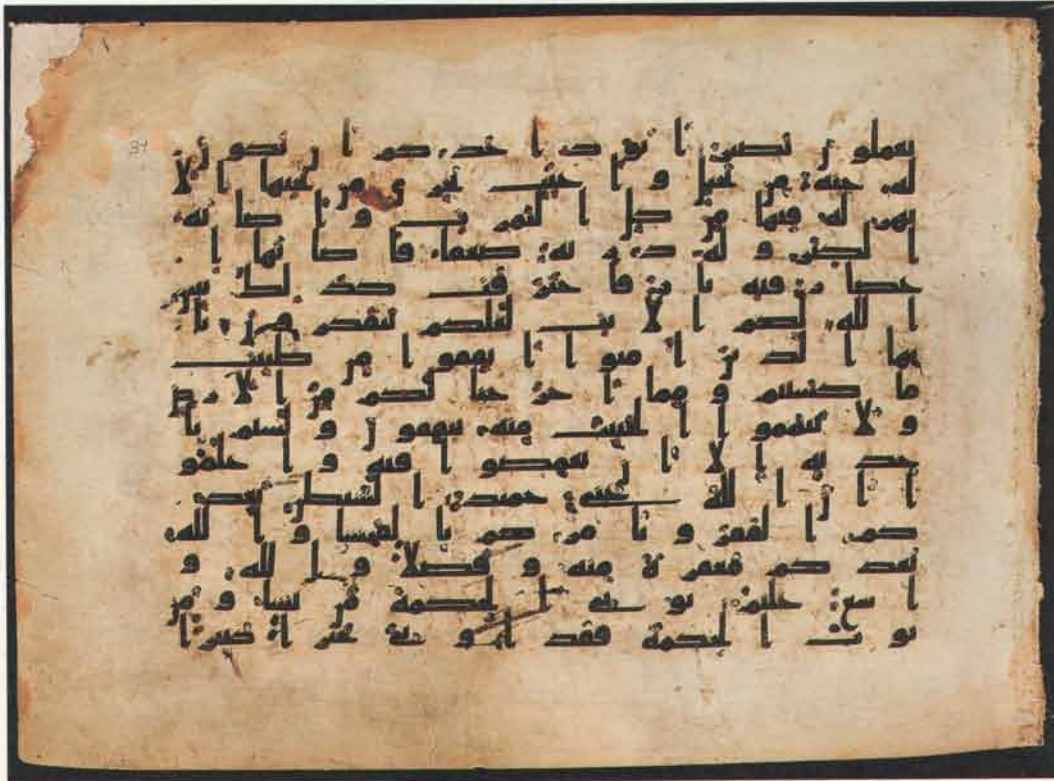 تعملون بصير ايود احدكم ان تكون
له جنة من نخيل واعنب تجري من تحتها الا
نهر له فيها من كل الثمرت واصابه
الكبر وله ذرية ضعفا فاصابها ا
عصار فيه نار فاحترقت كذلك يبين
الله لكم الايت لعلكم تتفكرون يا
يها الذين امنوا انفقوا من طيبت
ما كسبتم ومما اخرجنا لكم من الارض
ولا تيمموا الخبيث منه تنفقون ولستم با
خذيه الا ان تغمضوا فيه واعلمو
ا ان الله غني حميد الشيطن يعد
كم الفقر ويامركم بالفحشا والله
يعدكم مغفرة منه وفضلا والله و
اسع عليم يوتي الحكمة من يشا ومن
يوت الحكمة فقد اوتي خيرا كثيرا